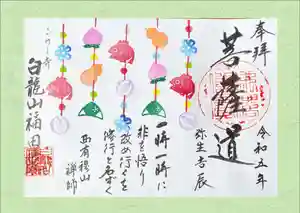 奉拝
菩薩道
令和五年
弥生吉辰
一時一時に
非を悟り
改め行くを
修行と名ずく
西有穆山
禅師
白龍山福田寺